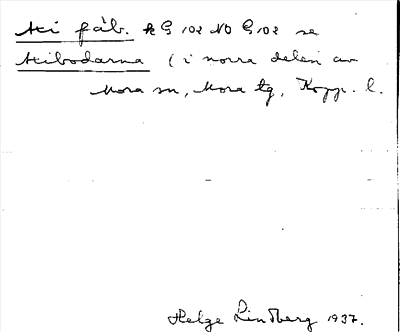 Ski fäb. k G 102 NO G 102 se
Skibodarna (i norra delen av
Mora sn, Mora tg, Kopp. l.
Helge Lindberg 1937.